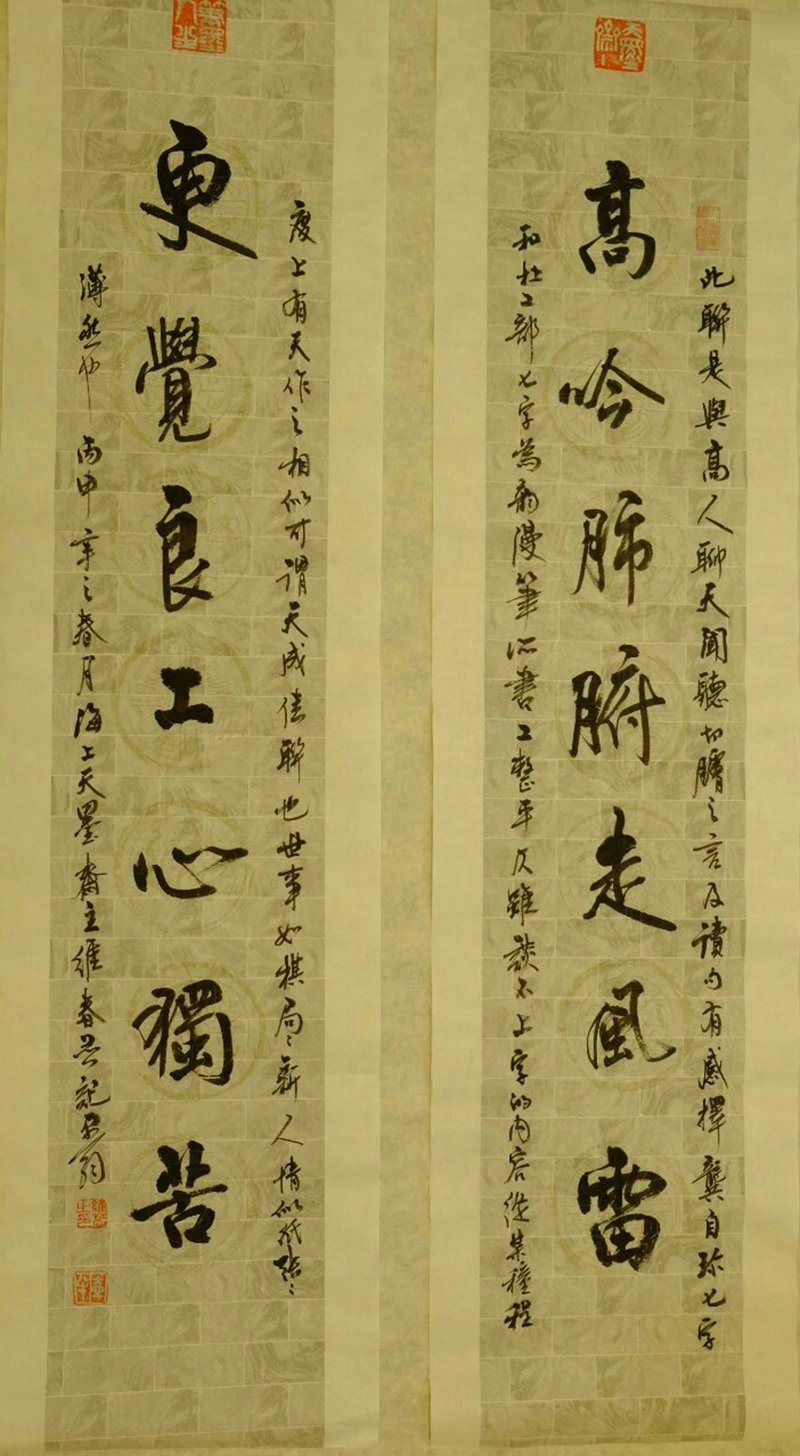 高吟肺腑走風雷
此聯是與高人聊天聞聽切膚之言及讀句有感擇龔自珍七字
和杜工部七字為韵漫筆所書工整平仄雖談不上字的內容從某種程
更覺良工心獨苦
度上有天作之相似可謂天成佳聯也世事如棋局〻新人情似紙張〻
薄然也丙申年之春月海上天墨齋主維春并記